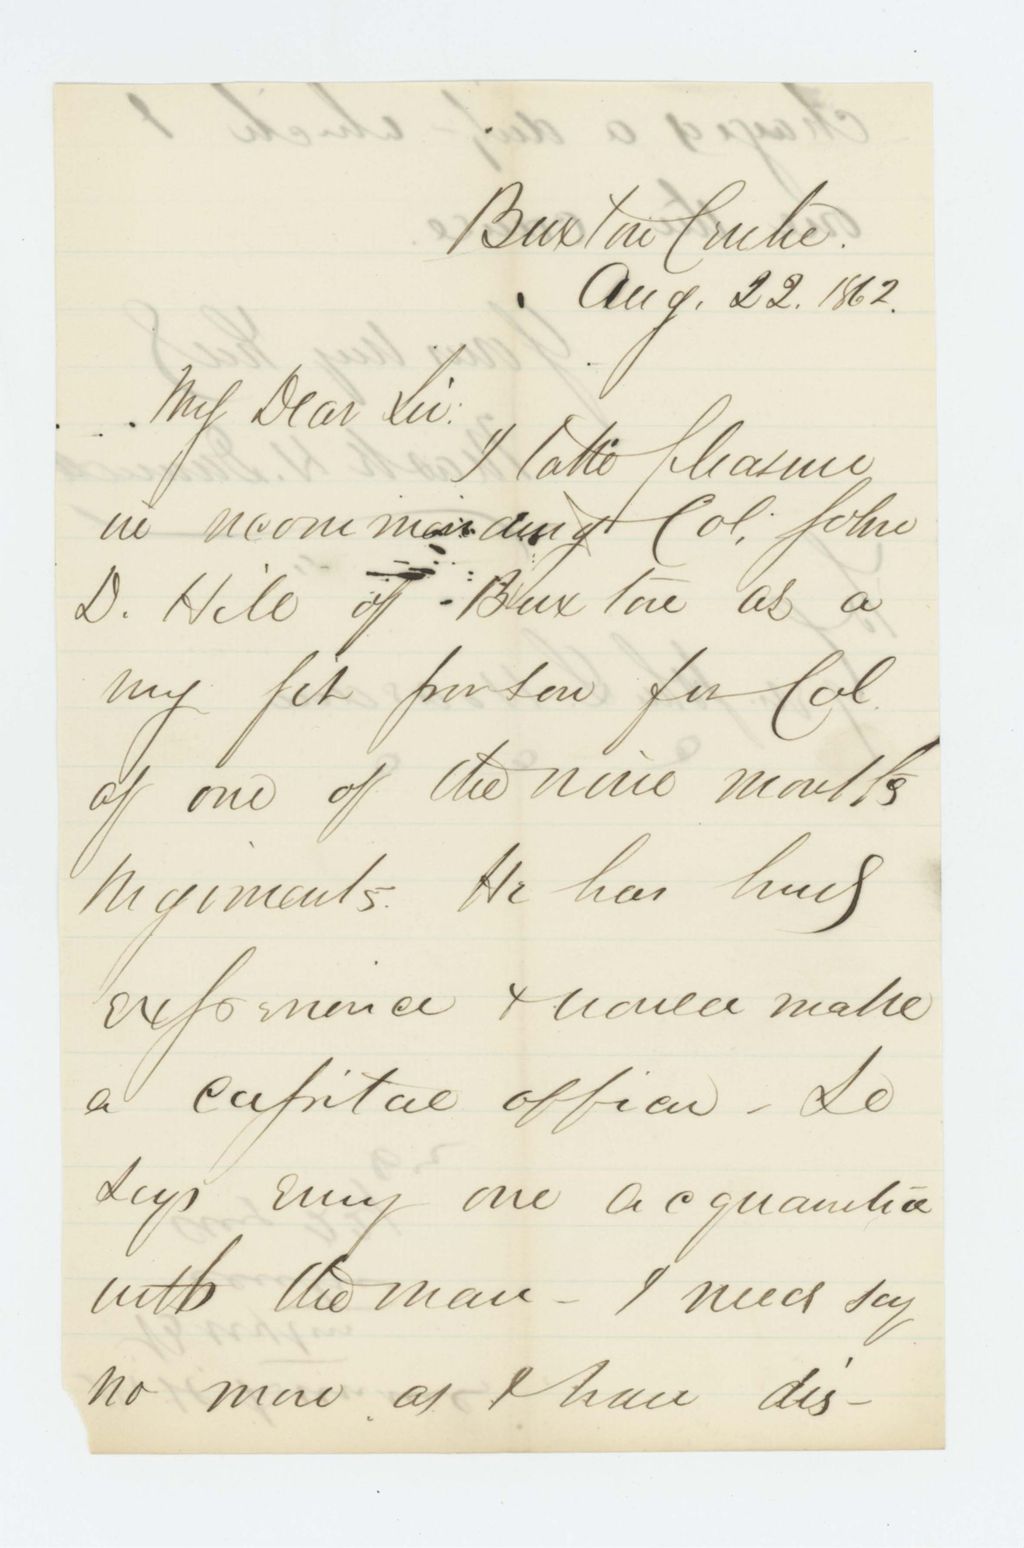 Buxton Centre.
Aug. 22. 1862.
My Dear Sir:
I take pleasure
in recommending Col. John
D. Hill of Buxton as a
very fit person for Col.
of one of the nine months
regiments. He has had
experience & would make
a capital officer - So
says every one acquainted
with the man - I need say
no more as I have dis-